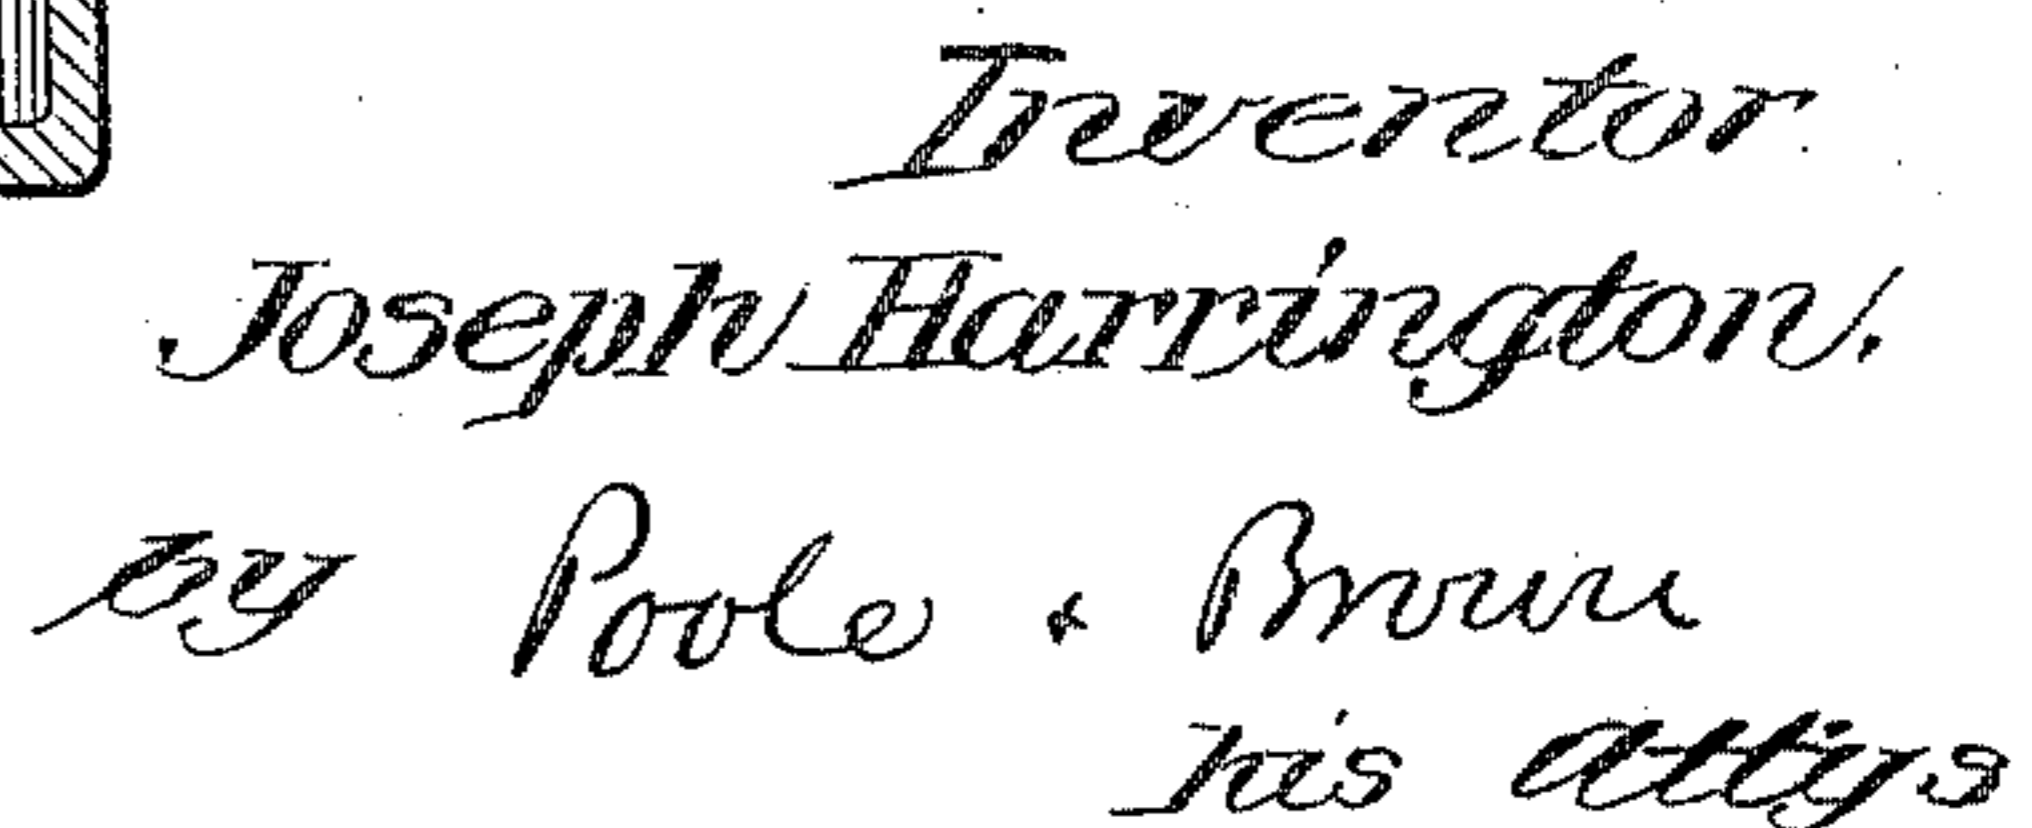 Inventor.
Joseph Harrington.
by Poole & Brown
his Attys